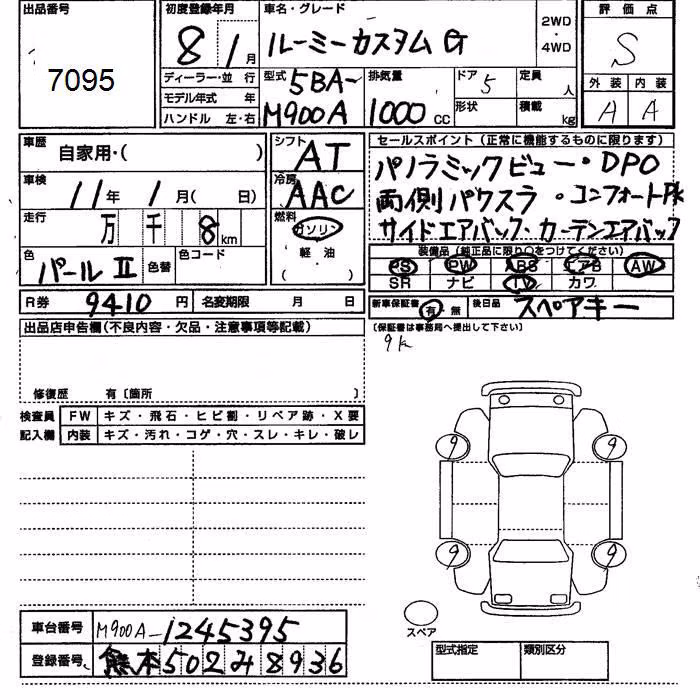 出品番号
7095
初度登録年月
8 1月
車名・グレード
ルーミーカスタム G
2WD
・
4WD
評価点
S
ディーラー・並行
モデル年式 年
ハンドル 左・右
型式
5BA-
M900A
排気量
1000 CC
ドア 5
定員 人
形状
積載 kg
外装 内装
A A
車歴
自家用・( )
シフト
AT
車検
11年 1月( 日)
冷房
AAC
走行
万 千 8 km
燃料
ガソリン
軽油
( ・ )
色
パールII
色替
色コード
R券 9410 円 名変期限 月 日
セールスポイント(正常に機能するものに限ります)
パノラミックビュー・DPO
両側パワスラ・コンフォートPK
サイドエアバック、カーテンエアバック
装備品(純正品に限り○をつけてください)
PS PW ABS エアB AW
SR ナビ TV カワ
新車保証書 有・無 後日品 スペアキー
(保証書は事務局へ提出して下さい)
出品店申告欄(不良内容・欠品・注意事項等記載)
修復歴 有〔箇所 〕
検査員 FW キズ・飛石・ヒビ割・リペア跡・X要
記入欄 内装 キズ・汚れ・コゲ・穴・スレ・キレ・破レ
9 9
9 9
スペア
車台番号 M900A-1245395
登録番号 熊本502み8936
型式指定 類別区分